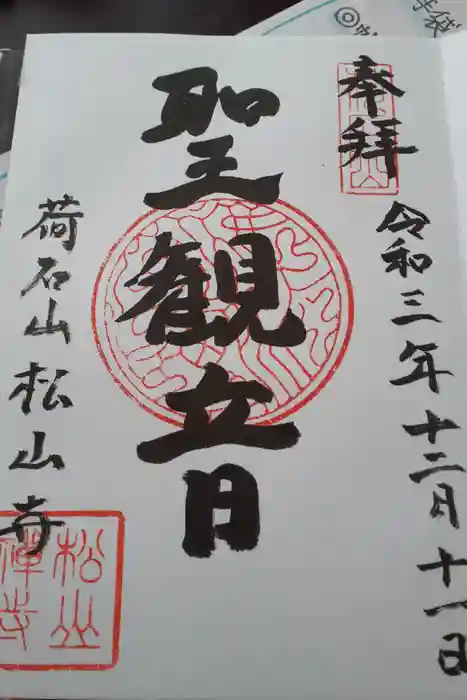 奉拝
令和三年十二月十一日
聖観音
荷石山松山寺
松山禅寺